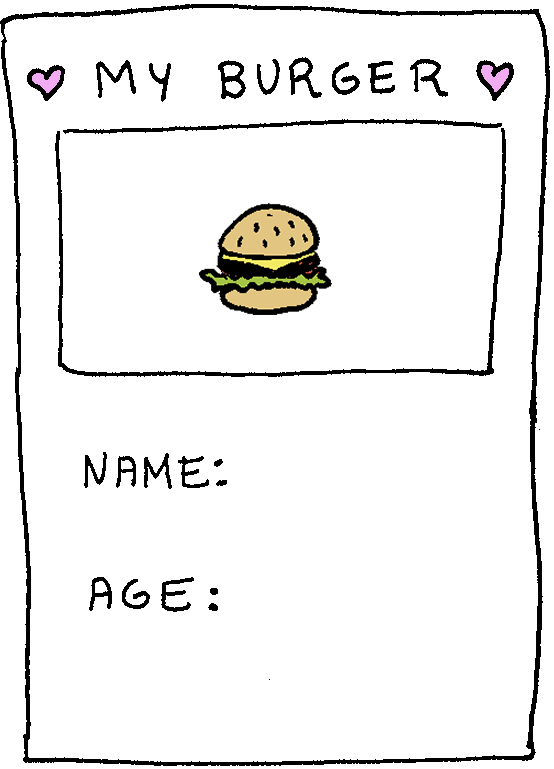 MY BURGER
NAME:
AGE: